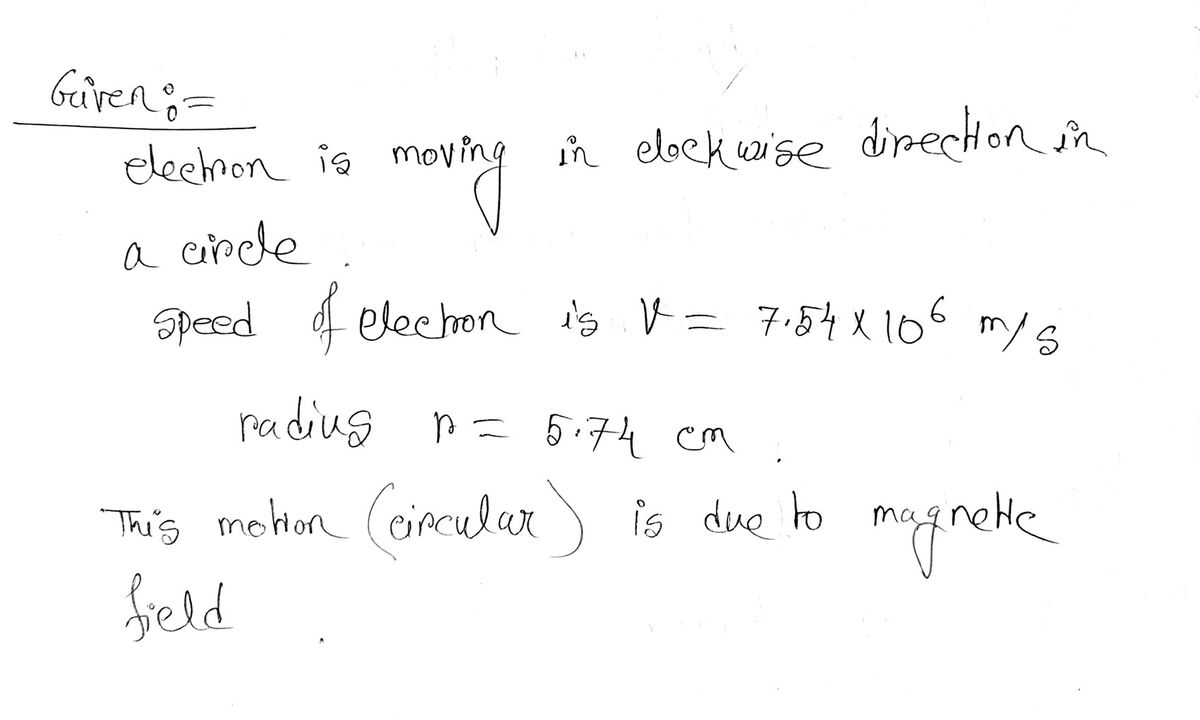 Given:=
electron is moving in clockwise direction in
a circle.
speed of electron is v = 7.54 x 10⁶ m/s
radius r = 5.74 cm.
This motion (circular) is due to magnetic
field.